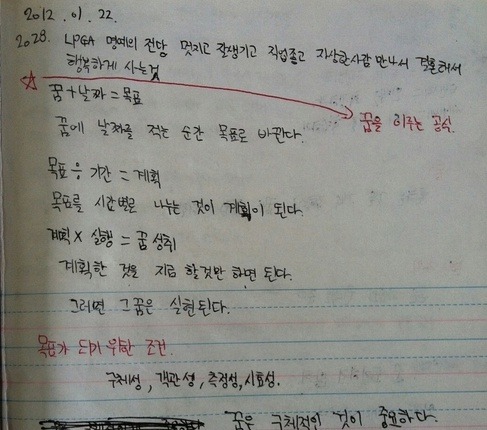 2012. 01. 22.
2028. LPGA 명예의 전당 멋지고 잘생기고 직업좋고 자상한사람 만나서 결혼해서
행복하게 사는것
꿈+날짜=목표
꿈을 이루는 공식.
꿈에 날짜를 적는 순간 목표로 바뀐다.
목표÷기간=계획
목표를 시간별로 나누는 것이 계획이 된다.
계획×실행=꿈성취
계획한 것을 지금 할것만 하면 된다.
그러면 그 꿈은 실현된다.
목표가 되기 위한 조건.
구체성, 객관성, 측정성, 시효성.
꿈은 구체적인 것이 중요하다.